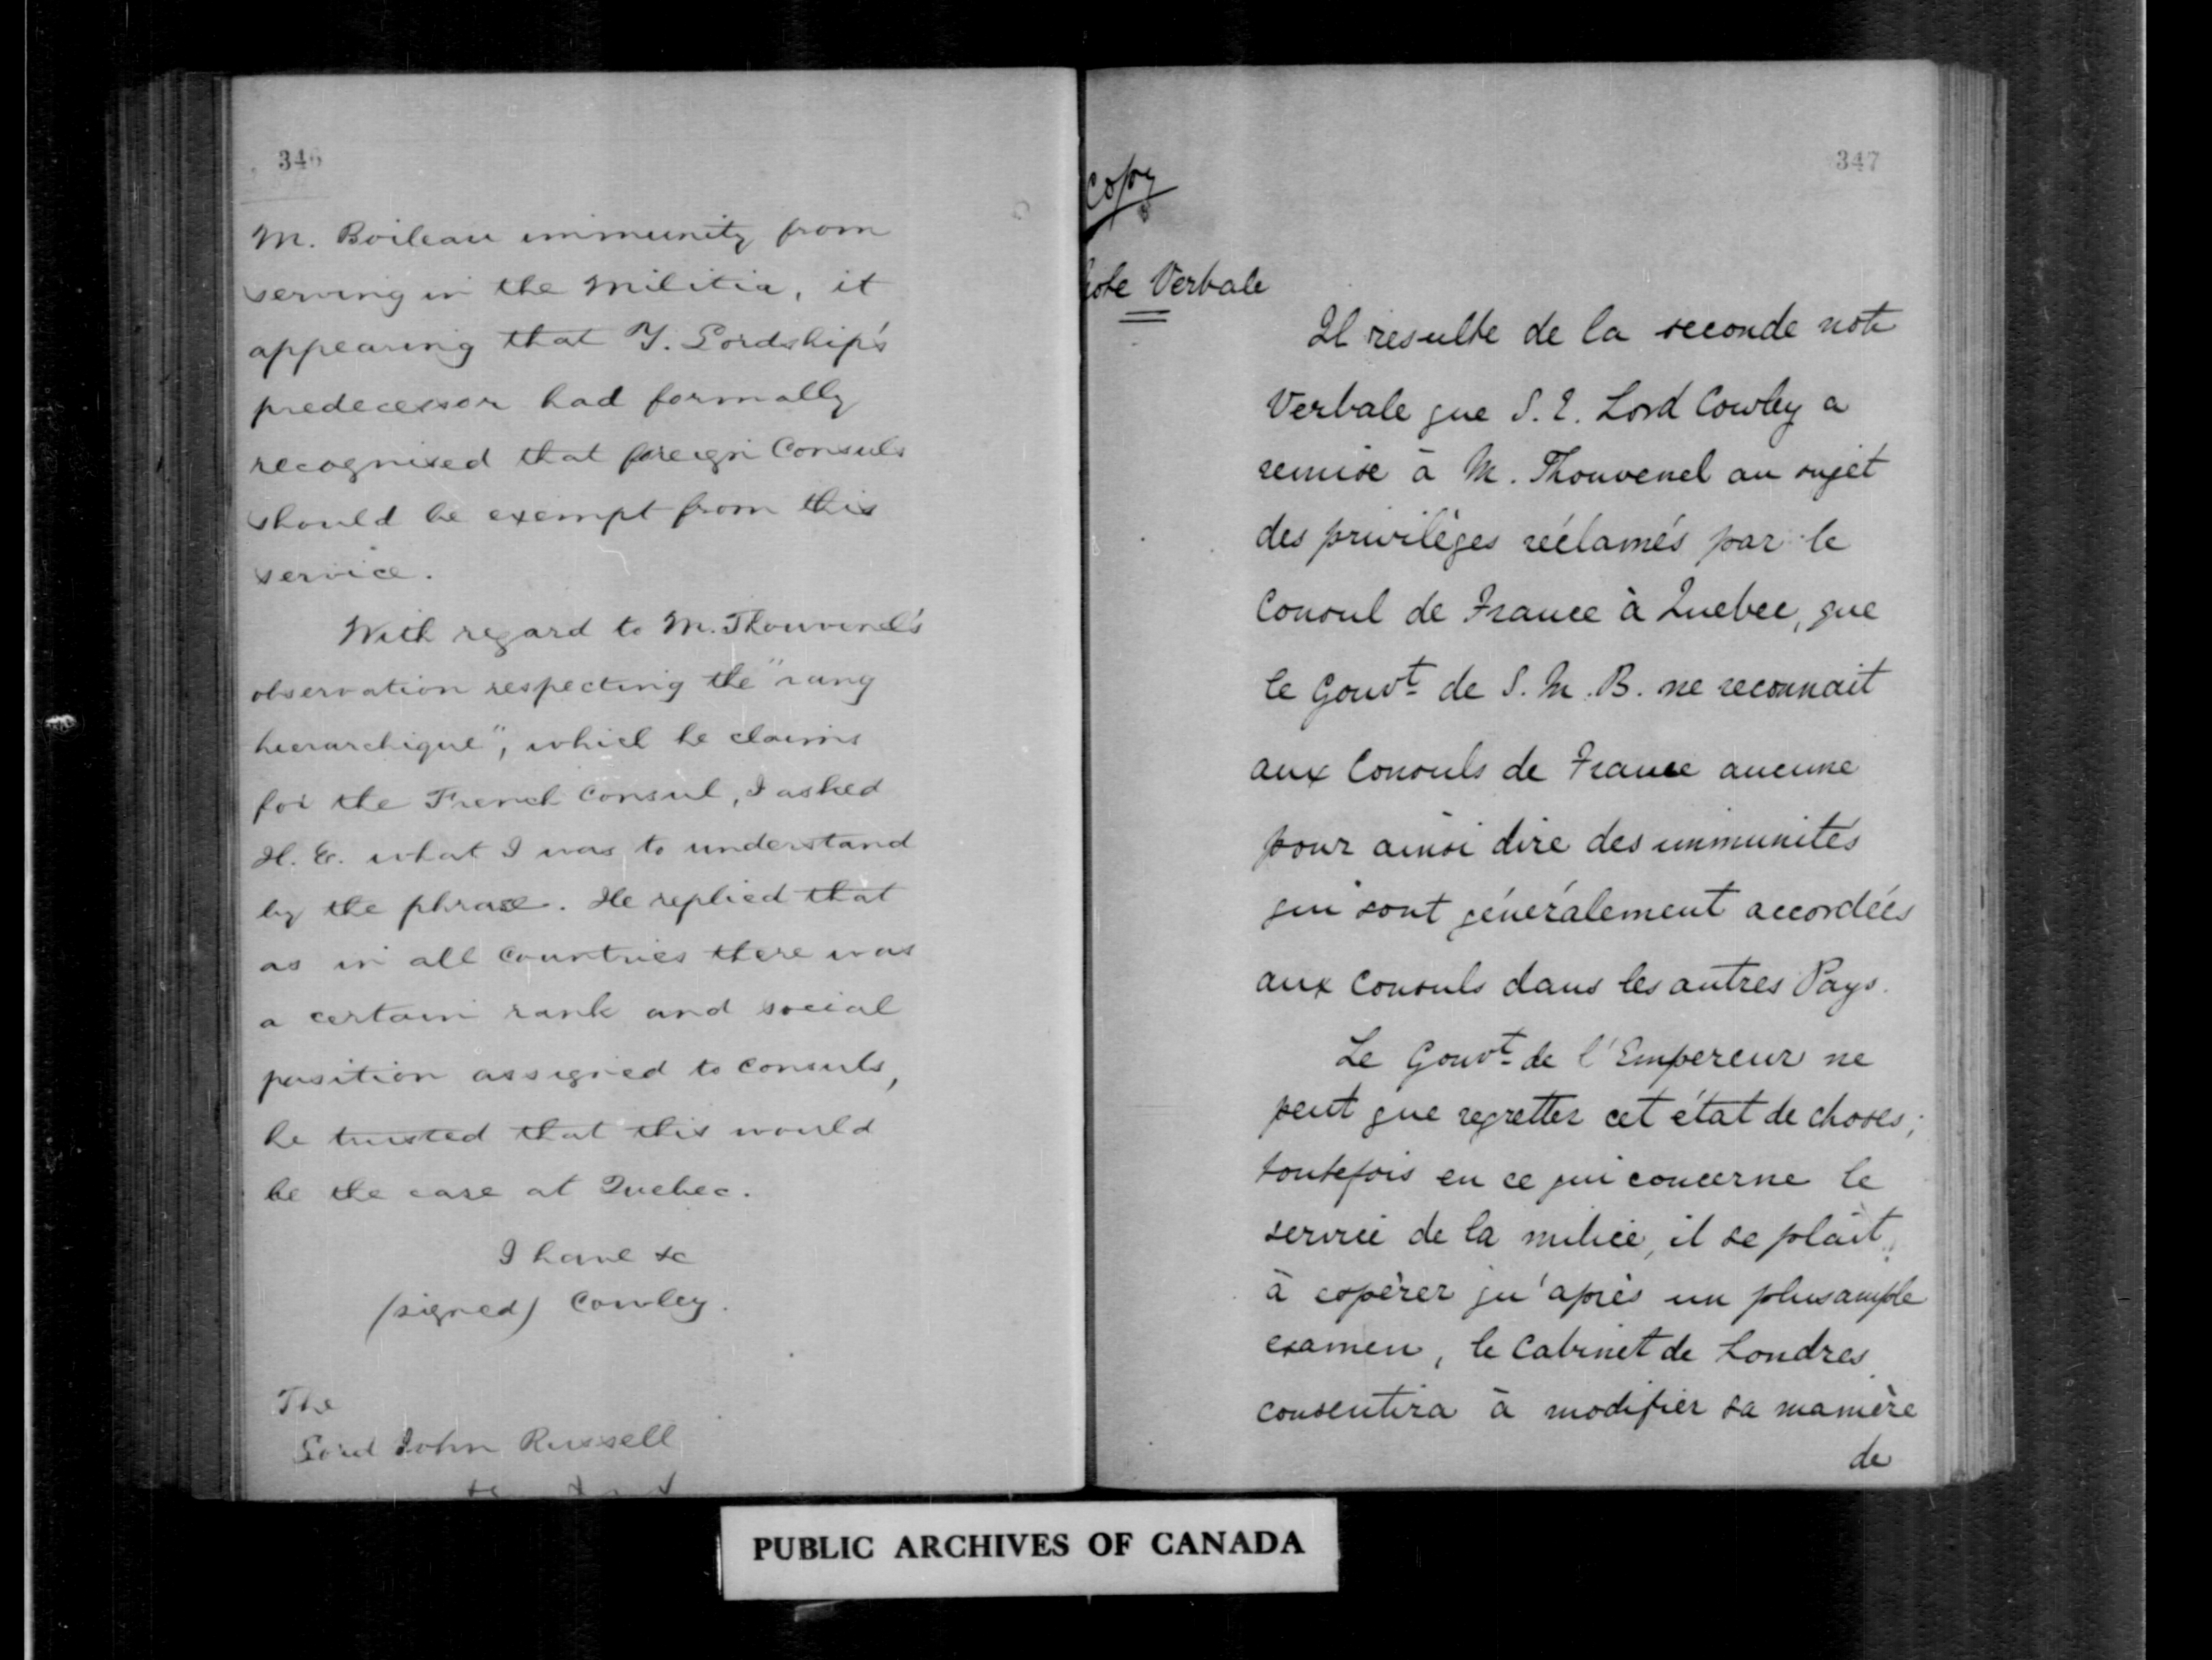 346
M. Boileau immunity from
serving in the Militia, it
appearing that Y. Lordship's
predecessor had formally
recognised that foreign Consuls
should be exempt from this
service.
With regard to M. Thouvenel's
observation respecting the "rang
hierarchique", which he claims
for the French Consul, I asked
H. E. what I was to understand
by the phrase. He replied that
as in all Countries there was
a certain rank and social
position assigned to Consuls,
he trusted that this would
be the case at Quebec.
I have &c
(signed) Cowley.
The
Lord John Russell
347
Copy
Note Verbale
Il resulte de la seconde note
Verbale que S. E. Lord Cowley a
remise à M. Thouvenel au sujet
des privilèges réclamés par le
Consul de France à Quebec, que
le Gouvt de S. M. B. ne reconnait
aux Consuls de France aucune
pour ainsi dire des immunités
qui sont généralement accordées
aux Consuls dans les autres Pays.
Le Gouvt de l'Empereur ne
peut que regretter cet état de choses;
toutefois en ce qui concerne le
service de la milice, il se plait,
à espérer qu'après un plus ample
examen, le Cabinet de Londres
consentira à modifier sa manière
de
PUBLIC ARCHIVES OF CANADA